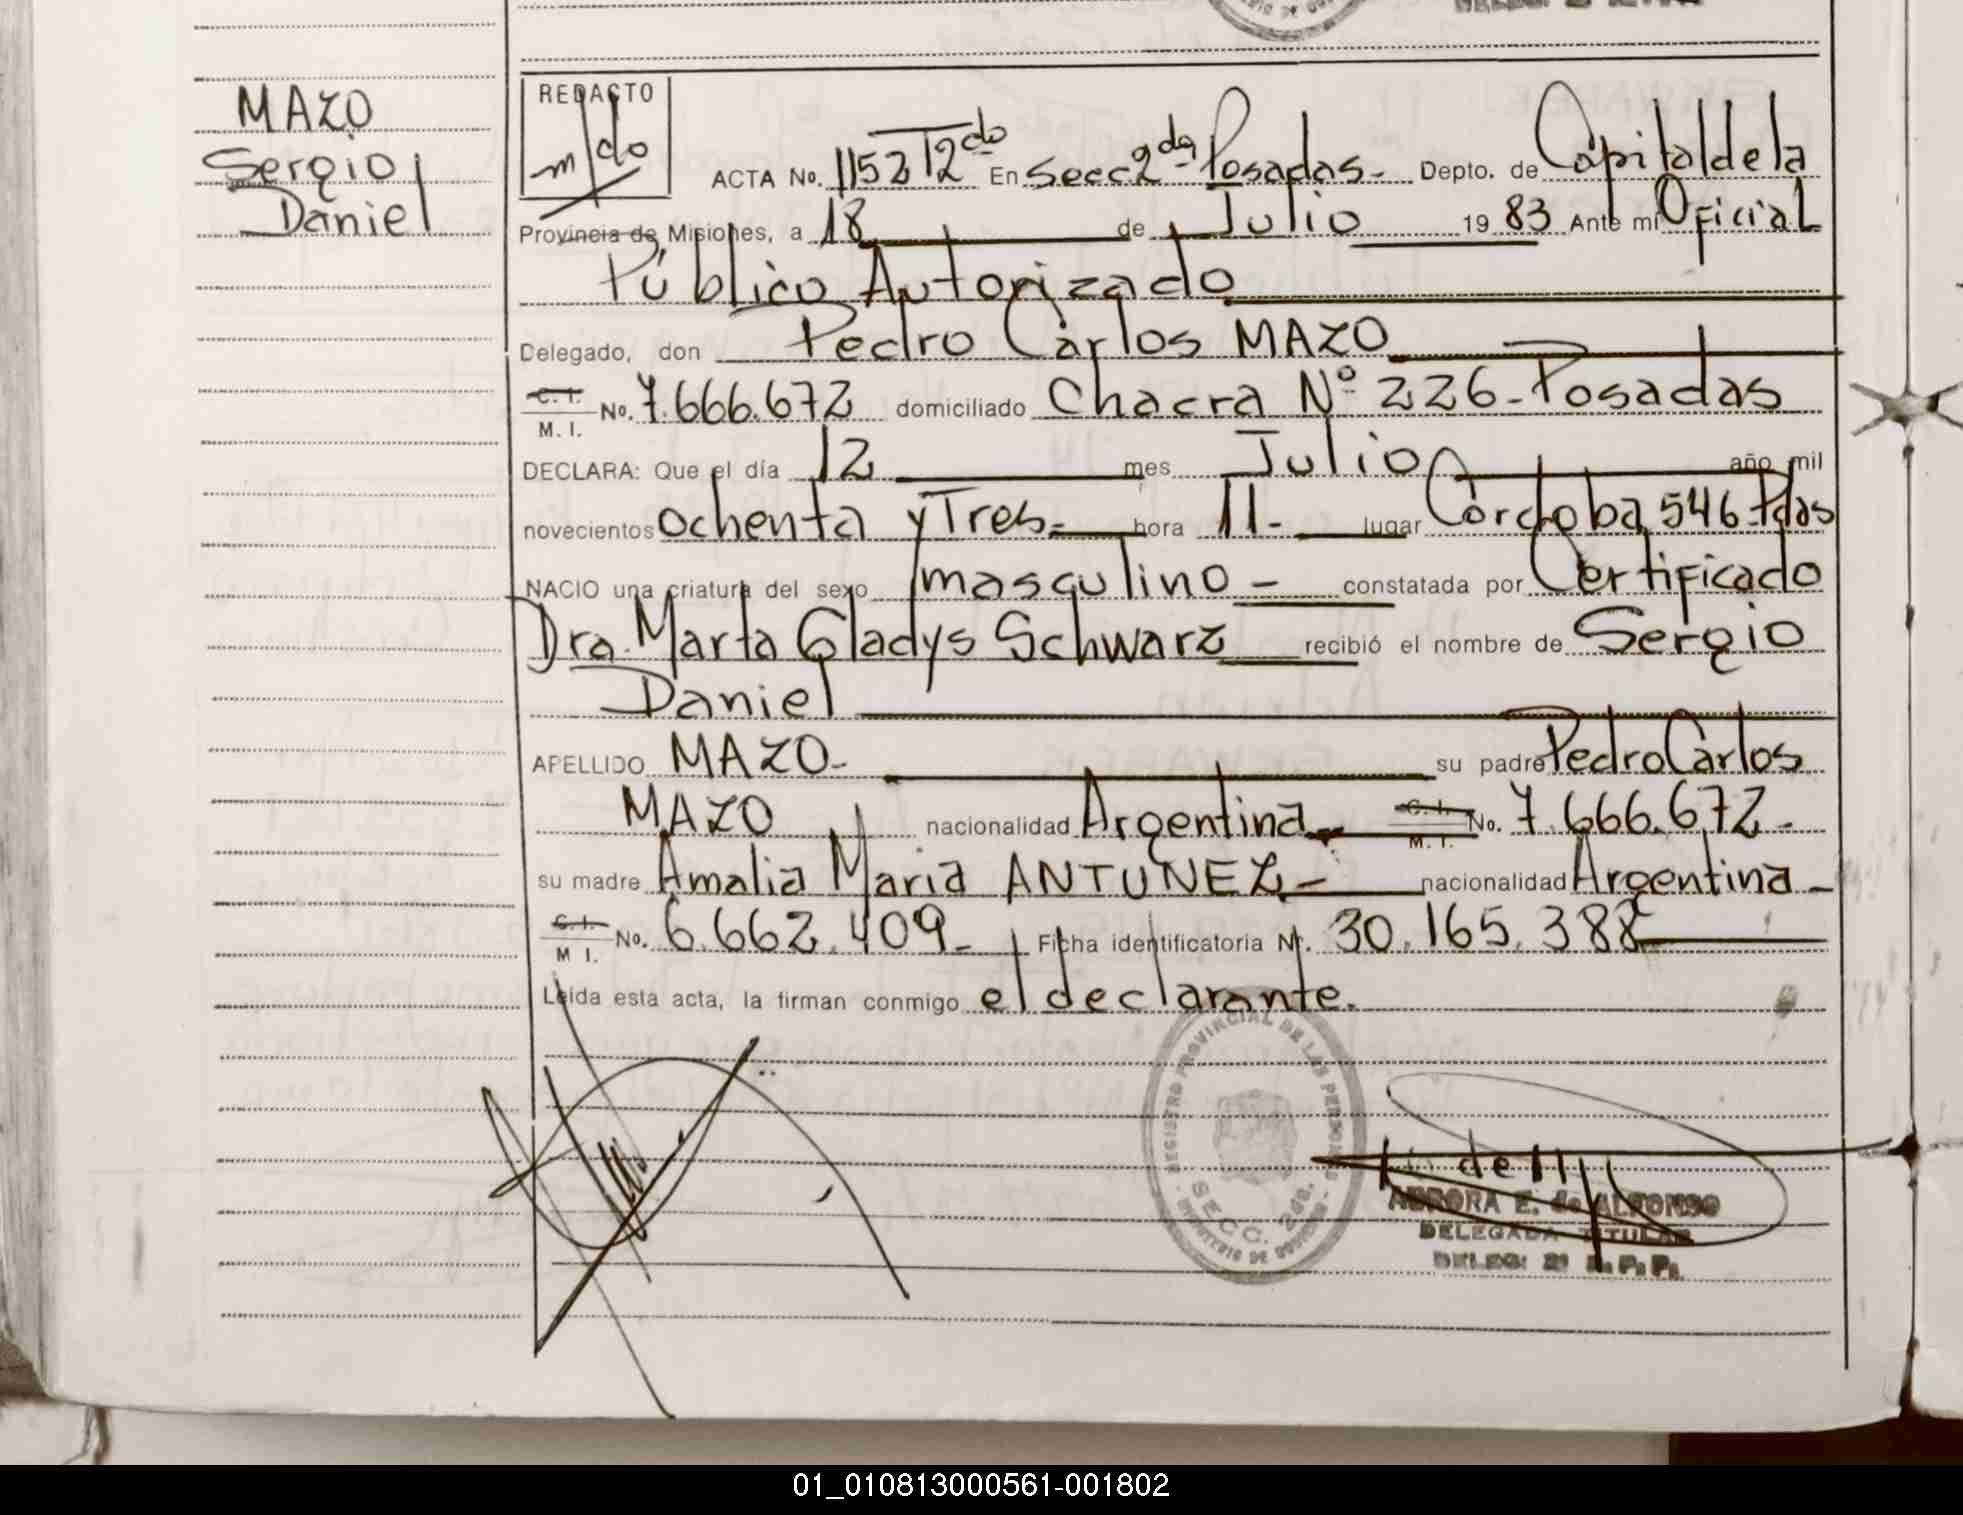 MAZO
Sergio
Daniel
REDACTO
m/do
ACTA No. 1152 T2do En Secc 2da Posadas- Depto. de Capital de la
Provincia de Misiones, a 18 de Julio 19 83 Ante mi Oficial
Público Autorizado
Delegado, don Pedro Carlos MAZO
C. I. M. I. No. 7.666.672 domiciliado Chacra Nº 226-Posadas
DECLARA: Que el día 12 mes Julio año mil
novecientos ochenta y Tres- hora 11- lugar Córdoba 546-Pdas
NACIO una criatura del sexo masculino - constatada por Certificado
Dra. Marta Gladys Schwarz recibió el nombre de Sergio
Daniel
APELLIDO MAZO- su padre Pedro Carlos
MAZO nacionalidad Argentina- C. I. M. I. No. 7.666.672-
su madre Amalia Maria ANTUNEZ- nacionalidad Argentina-
C. I. M I. No. 6.662.409- Ficha identificatoria Nr. 30.165.388
Leída esta acta, la firman conmigo el declarante.
REGISTRO PROVINCIAL DE LAS PERSONAS
SECC. 2da.
MINISTERIO DE GOBIERNO
AURORA E. de ALFONSO
DELEGADA TITULAR
DELEG. 2ª R. P. P.
01_010813000561-001802